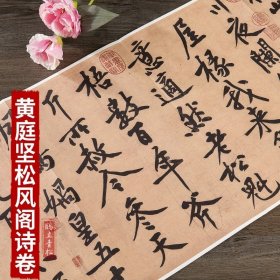 川夜闌
屋椽我来
意適然老松魁
梧數百年斧
斤所赦今參天
媧皇五十
黄庭坚松风阁诗卷